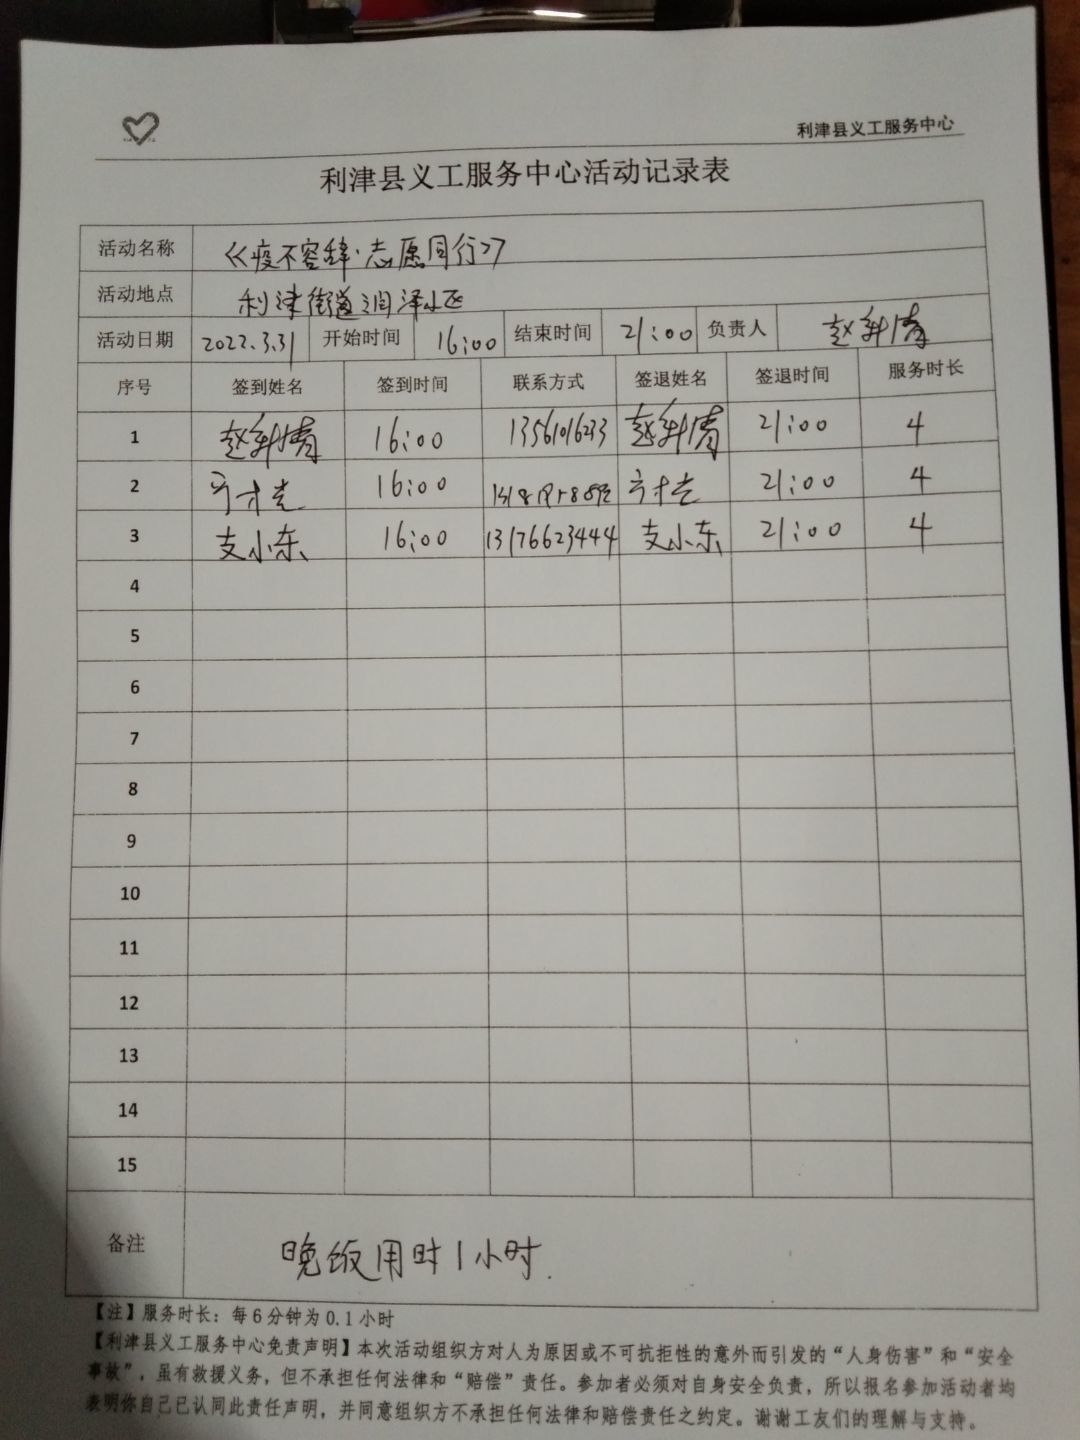 利津县义工服务中心
利津县义工服务中心活动记录表
活动名称 《疫不容辞·志愿同行》
活动地点 利津街道润泽小区
活动日期 2022.3.31 开始时间 16:00 结束时间 21:00 负责人 赵 倩
序号 签到姓名 签到时间 联系方式 签退姓名 签退时间 服务时长
1 赵 倩 16:00 13561016233 赵 倩 21:00 4
2 16:00 21:00 4
3 支小东 16:00 13176623444 支小东 21:00 4
4
5
6
7
8
9
10
11
12
13
14
15
备注 晚饭用时1小时.
【注】服务时长：每6分钟为0.1小时
【利津县义工服务中心免责声明】本次活动组织方对人为原因或不可抗拒性的意外而引发的“人身伤害”和“安全
事故”，虽有救援义务，但不承担任何法律和“赔偿”责任。参加者必须对自身安全负责，所以报名参加活动者均
表明你自己已认同此责任声明，并同意组织方不承担任何法律和赔偿责任之约定。谢谢工友们的理解与支持。